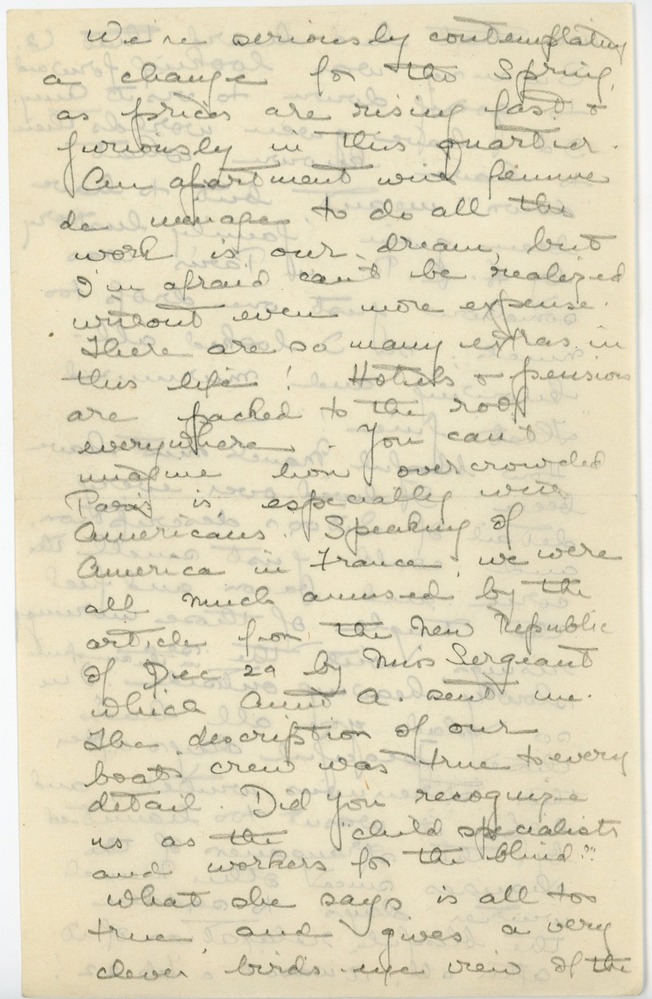 We're seriously contemplating
a change for the Spring,
as prices are rising fast &
furiously in this quartier.
An apartment with femme
de menage to do all the
work is our dream, but
I'm afraid can't be realized
without even more expense.
There are so many extras in
this life! Hotels & pensions
are packed to the roof
everywhere. You can't
imagine how overcrowded
Paris is, especially with
Americans. Speaking of
America in France, we were
all much amused by the
article from the New Republic
of Dec 29 by Miss Sergeant
which Aunt A. sent me.
The description of our
boat's crew was true to every
detail. Did you recognize
us as the "child specialists
and workers for the blind?"
What she says is all too
true, and gives a very
clever birds-eye view of the